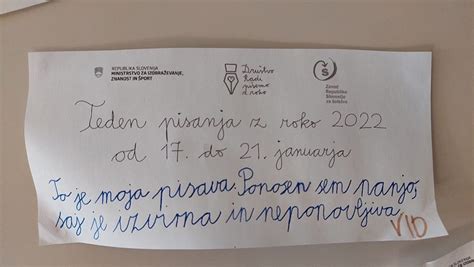 REPUBLIKA SLOVENIJA
MINISTRSTVO ZA IZOBRAŽEVANJE,
ZNANOST IN ŠPORT
Društvo
Radi
pišemo
z roko
Zavod
Republike
Slovenije
za šolstvo
Teden pisanja z roko 2022
od 17. do 21. januarja
To je moja pisava. Ponosen sem nanjo,
saj je izvirna in neponovljiva.
VID